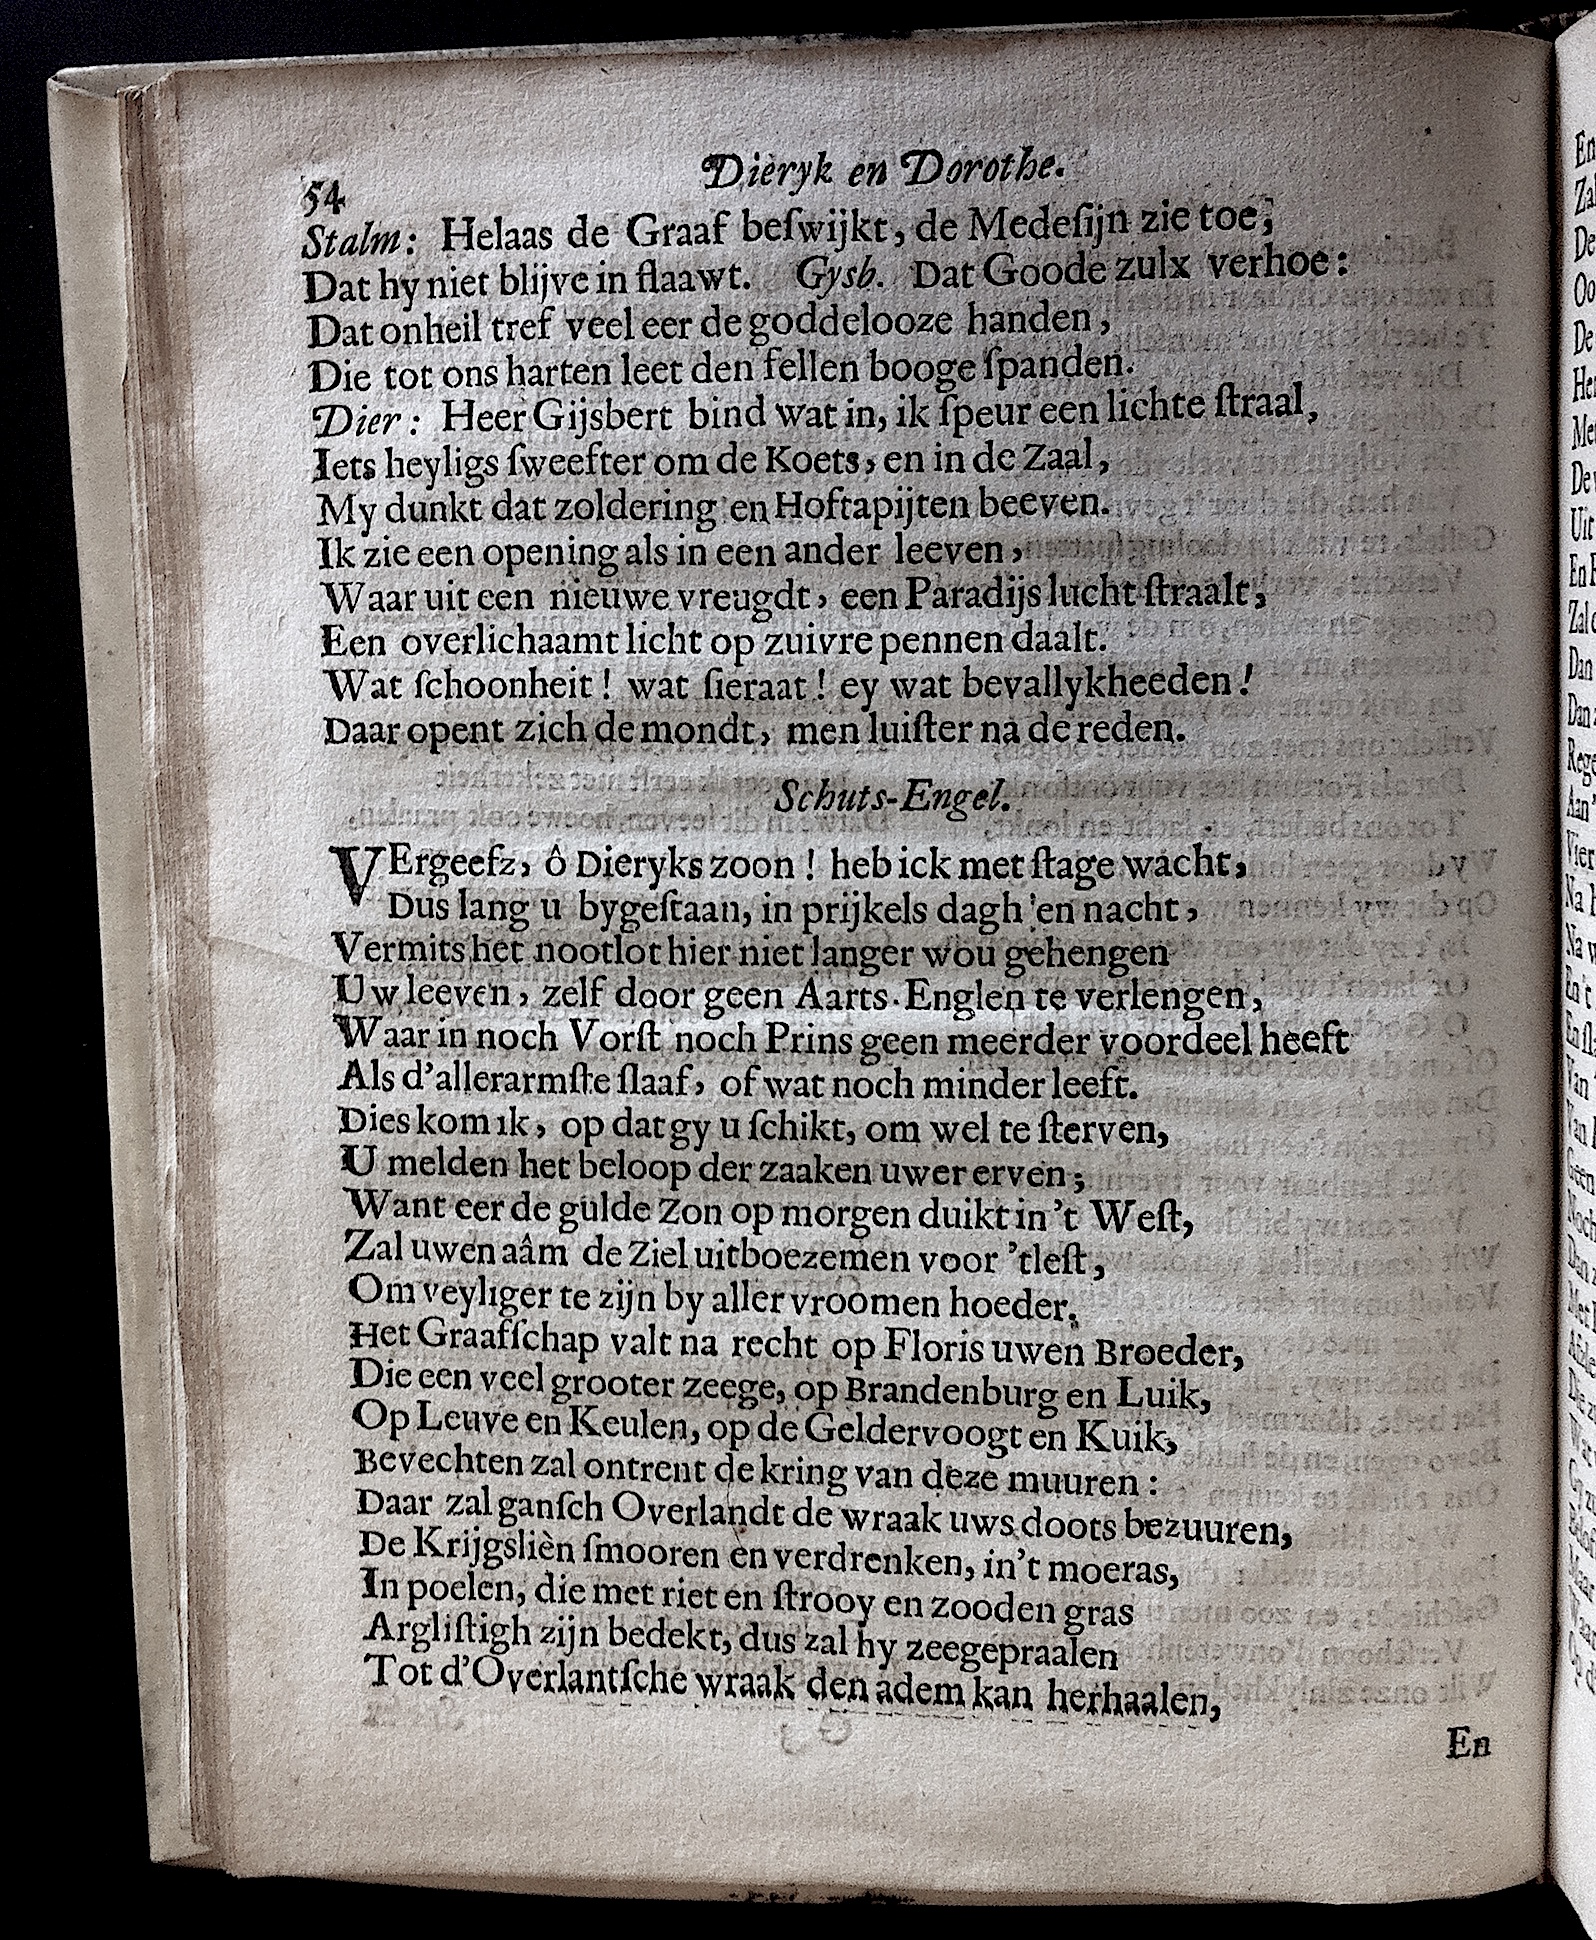 54 Dieryk en Dorothe.
Stalm: Helaas de Graaf beſwijkt, de Medeſijn zie toe,
Dat hy niet blijve in ſlaawt. Gysb. Dat Goode zulx verhoe:
Dat onheil tref veel eer de goddelooze handen,
Die tot ons harten leet den fellen booge ſpanden.
Dier: Heer Gijsbert bind wat in, ik ſpeur een lichte ſtraal,
Iets heyligs ſweefter om de Koets, en in de Zaal,
My dunkt dat zoldering en Hoftapijten beeven.
Ik zie een opening als in een ander leeven,
Waar uit een nieuwe vreugdt, een Paradijs lucht ſtraalt,
Een overlichaamt licht op zuivre pennen daalt.
Wat ſchoonheit! wat ſieraat! ey wat bevallykheeden!
Daar opent zich de mondt, men luiſter na de reden.
Schuts-Engel.
VErgeefz, ô Dieryks zoon! heb ick met ſtage wacht,
Dus lang u bygeſtaan, in prijkels dagh en nacht,
Vermits het nootlot hier niet langer wou gehengen
Uw leeven, zelf door geen Aarts-Englen te verlengen,
Waar in noch Vorſt noch Prins geen meerder voordeel heeft
Als d'allerarmſte ſlaaf, of wat noch minder leeft.
Dies kom ik, op dat gy u ſchikt, om wel te ſterven,
U melden het beloop der zaaken uwer erven;
Want eer de gulde Zon op morgen duikt in 't Weſt,
Zal uwen aâm de Ziel uitboezemen voor 'tleſt,
Om veyliger te zijn by aller vroomen hoeder.
Het Graafſchap valt na recht op Floris uwen Broeder,
Die een veel grooter zeege, op Brandenburg en Luik,
Op Leuve en Keulen, op de Geldervoogt en Kuik,
Bevechten zal ontrent de kring van deze muuren:
Daar zal ganſch Overlandt de wraak uws doots bezuuren,
De Krijgslièn ſmooren en verdrenken, in't moeras,
In poelen, die met riet en ſtrooy en zooden gras
Argliſtigh zijn bedekt, dus zal hy zeegepraalen
Tot d'Overlantſche wraak den adem kan herhaalen,
En